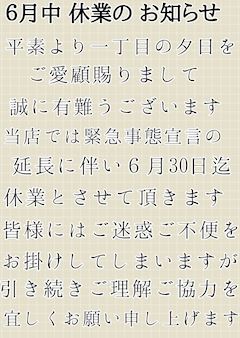 6月中 休業の お知らせ
平素より一丁目の夕日を
ご愛顧賜りまして
誠に有難うございます
当店では緊急事態宣言の
延長に伴い６月30日迄
休業とさせて頂きます
皆様にはご迷惑ご不便を
お掛けしてしまいますが
引き続きご理解ご協力を
宜しくお願い申し上げます